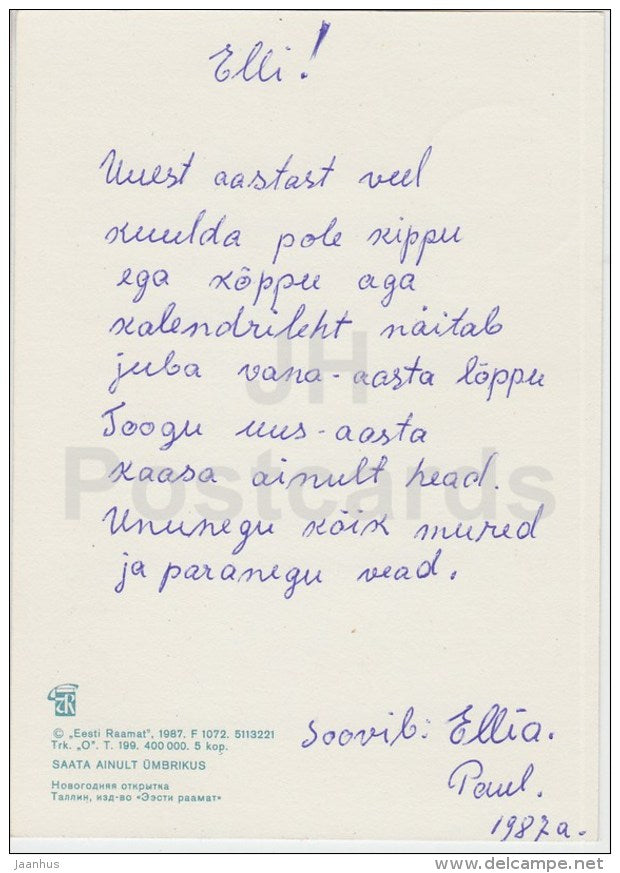 Elli!
Uuest aastast veel
kuulda pole kippu
ega kõppu aga
kalendrileht näitab
juba vana-aasta lõppu
Toogu uus-aasta
kaasa ainult head.
Ununegu kõik mured
ja paranegu vead.
Soovib: Ellia.
Paul.
1987a.
© „Eesti Raamat", 1987. F 1072. 5113221
Trk. „O". T. 199. 400 000. 5 kop.
SAATA AINULT ÜMBRIKUS
Новогодняя открытка
Таллин, изд-во «Ээсти раамат»
JH
Postcards
jaanhus
www.delcampe.net